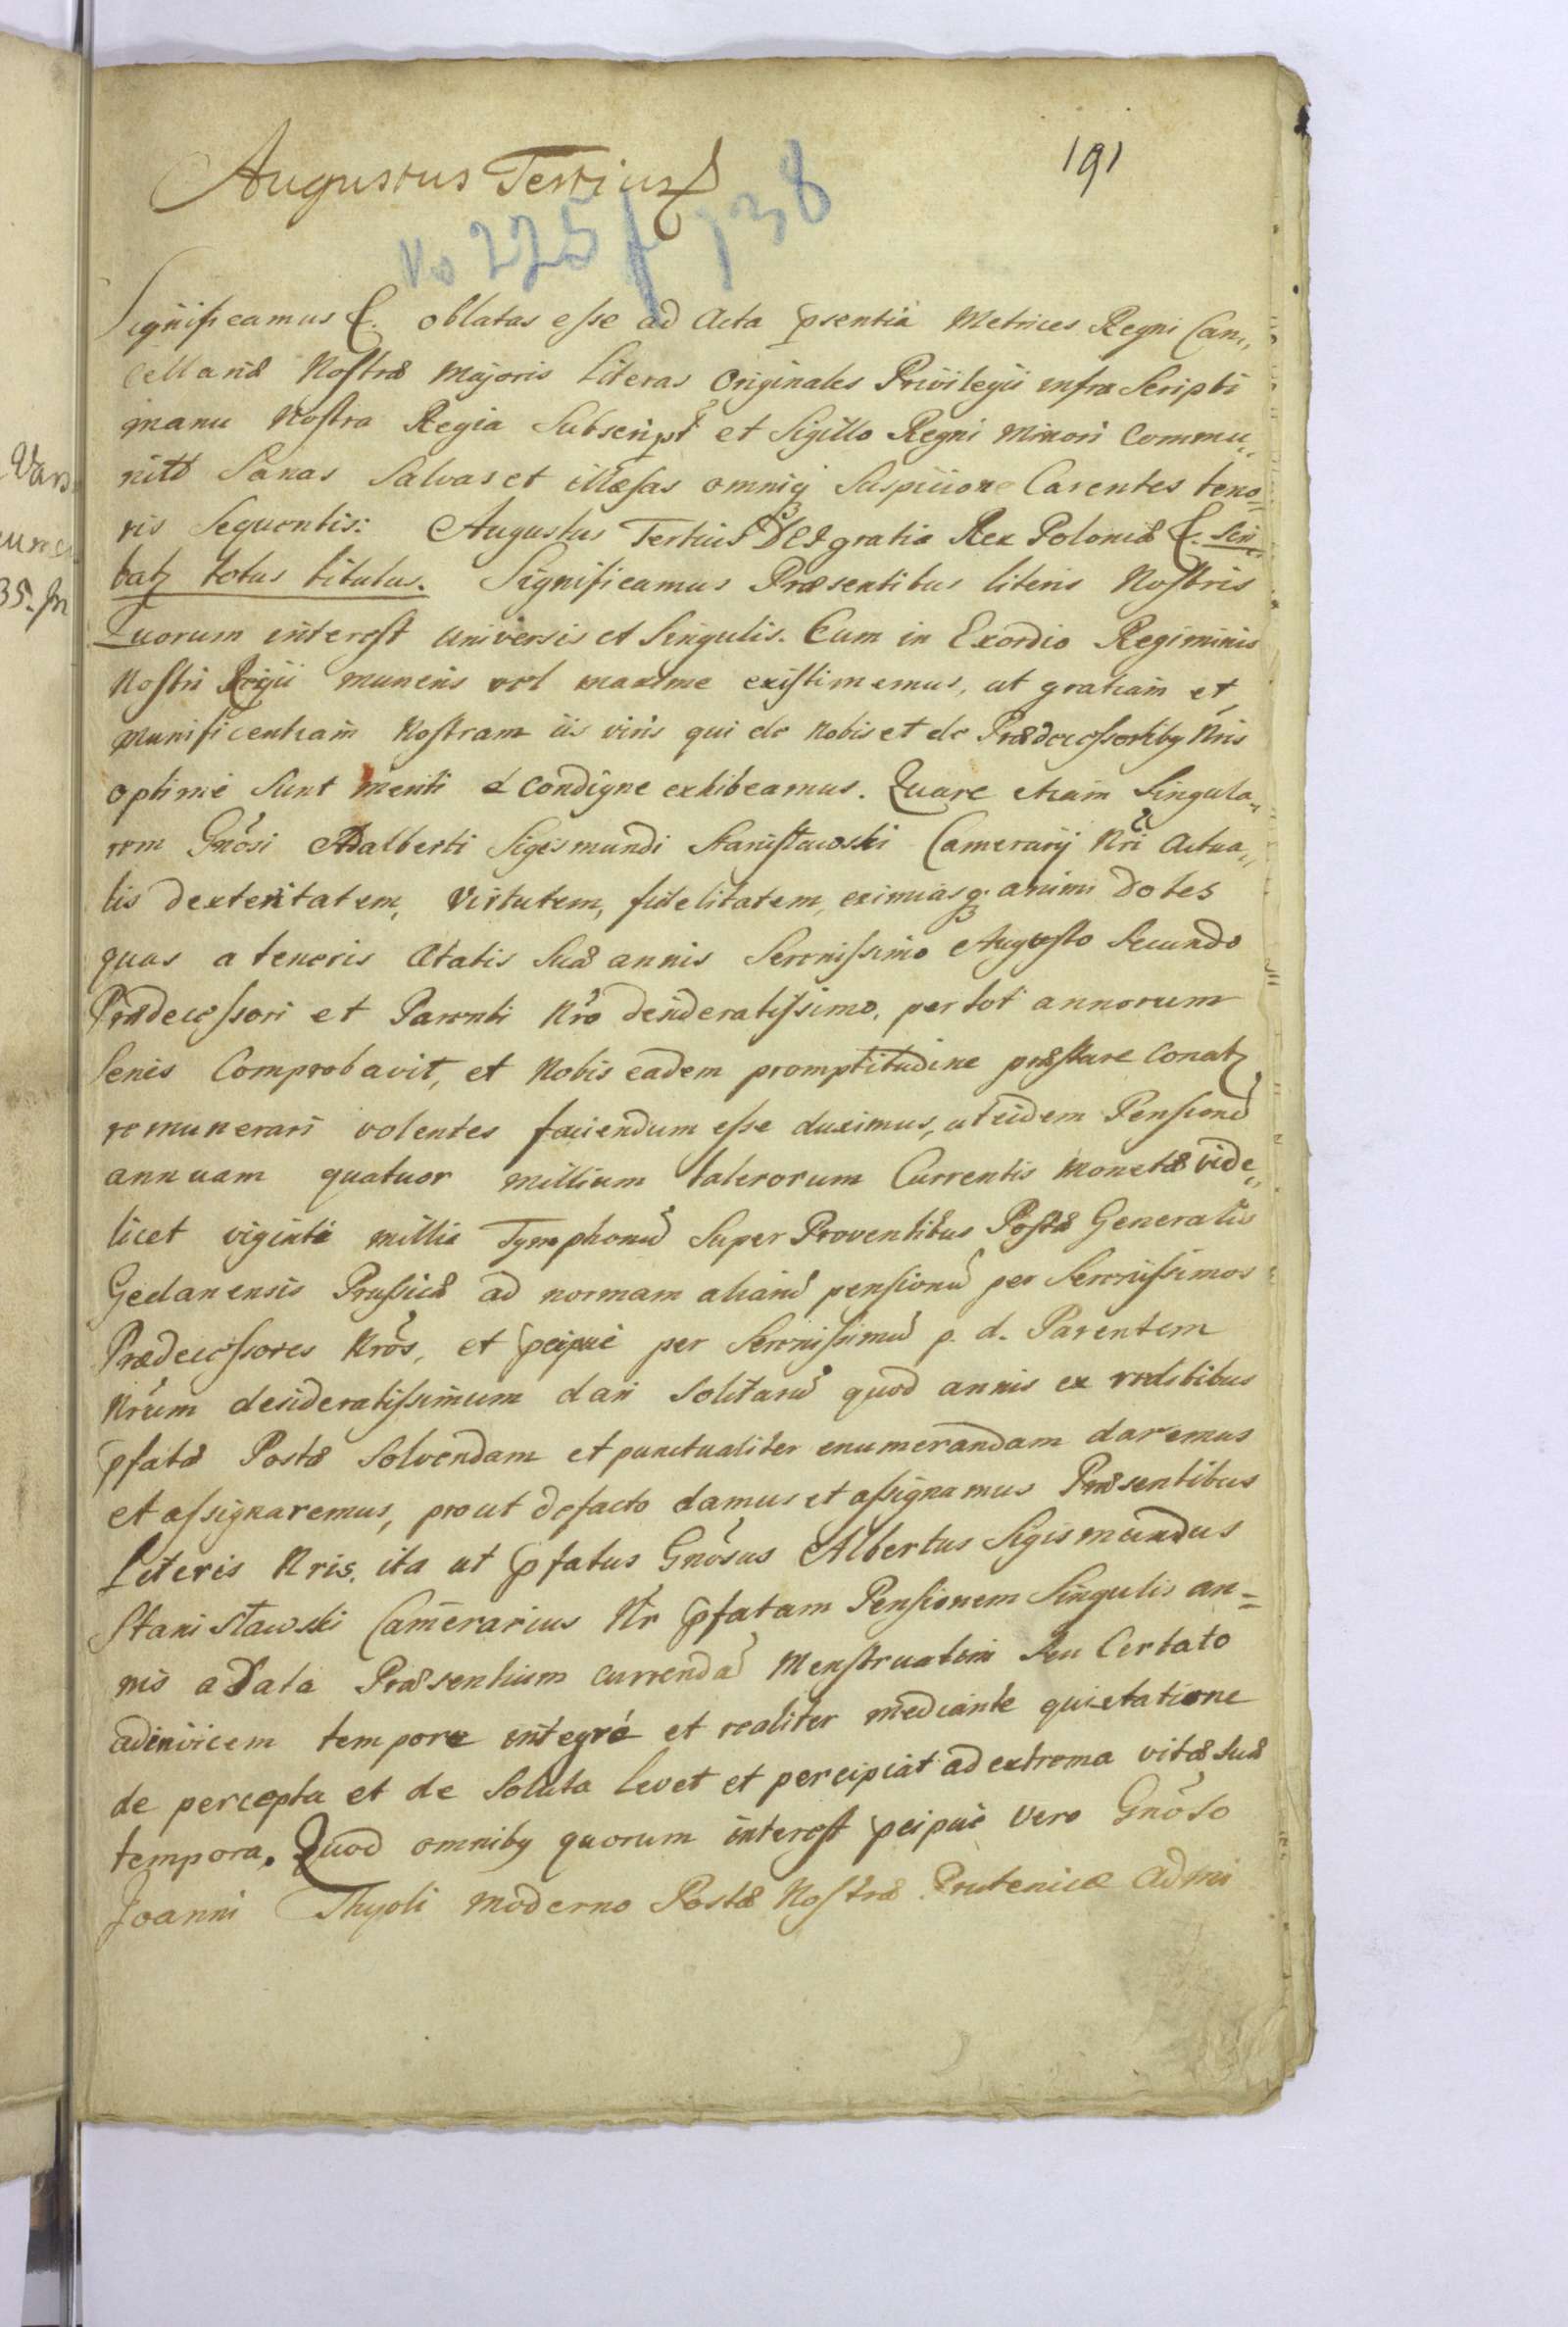 191
Augustus Tertius
No 225 f 738
Significamus &. oblatas esse ad Acta pſentia Metrices Regni Can,,
cellariæ Noſtræ Majoris Literas Originales Privilegii infra Scripti
manu Noſtra Regia Subscript et Sigillo Regni Minori Commu,,
nitas Sanas Salvas et illæsas omniq suspicione Carentes teno=
ris Sequentis: Augustus Tertius DEI gratia Rex Poloniæ &. Scri
batz totus titulus. Significamus Præsentibus literis Noſtris
Quorum intereſt universis et Singulis. Cum in Exordio Regiminis
Noſtri Regii muneris vel maxime exiſtimemus, ut gratiam et
munificentiam Noſtram iis viris qui de Nobis et de Prædecessoribq Nris
optime Sunt meriti condigne exhibeamus. Quare etiam Singula,,
rem Gnosi Adalberti Sigismundi Staniſławski Camerarij Nri Actua,,
lis dexteritatem, Virtutem, fidelitatem, eximiasq. animi dotes
quas a teneris Ætatis Suæ annis Serenissimo Augusto Secundo
Prædecessori et Parenti Nro desideratissimo, per tot annorum
Seriès Comprobavit, et Nobis eadem promptitudine præstare Conatz
remunerari volentes faciendum esse duximus, ut eidem Pensionē
annuam quatuor millium talerorum Currentis Monetæ vide,,
licet viginti millia Tymphonū Super Proventibus Poſtæ Generalis
Gedanensis Prussicæ ad normam aliarū pensionū per Serenissimos
Prædecessores Nros, et pcipuè per Serenissimū p. d. Parentem
Nrum desideratissimum dari Solitarū quod annis ex reditibus
pfatæ Postæ Solvendam et punctualiter enumerandam daremus
et assignaremus, prout defacto damus et assignamus Præsentibus
Literis Nris, ita ut pfatus Gnosus Albertus Sigismundus
Stanisławski Camerarius Nr pfatam Pensionem Singulis an=
nis a Data Præsentium currendā Menſtruatim Seu Certato
adinvicem tempore integrè et realiter mediante quietatione
de percepta et de Soluta levet et percipiat ad extrema vitæ suæ
tempora. Quod omnibq quorum intereſt pcipuè vero Gnoso
Joanni Thyoli moderno Postæ Noſtræ Prutenicæ Admi